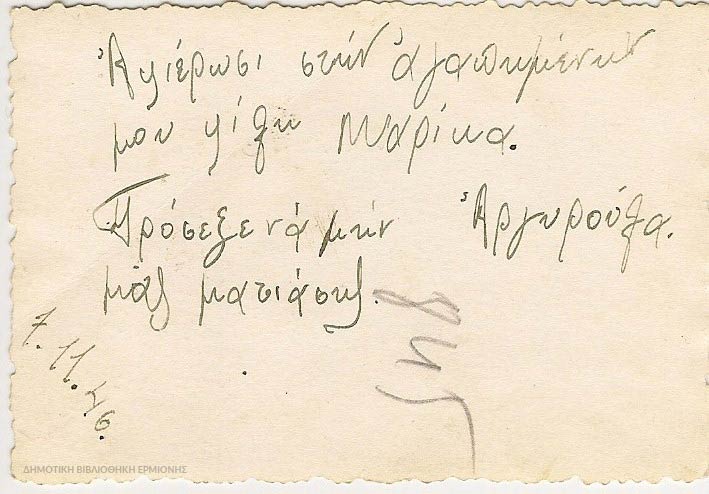 Ἀφιέρωσι στήν ἀγαπημένη
μου φίλη Μαρίκα.
Πρόσεξε νά μήν Ἀργυρούλα.
μᾶς ματιάσης.
7.11.46.
845
ΔΗΜΟΤΙΚΗ ΒΙΒΛΙΟΘΗΚΗ ΕΡΜΙΟΝΗΣ